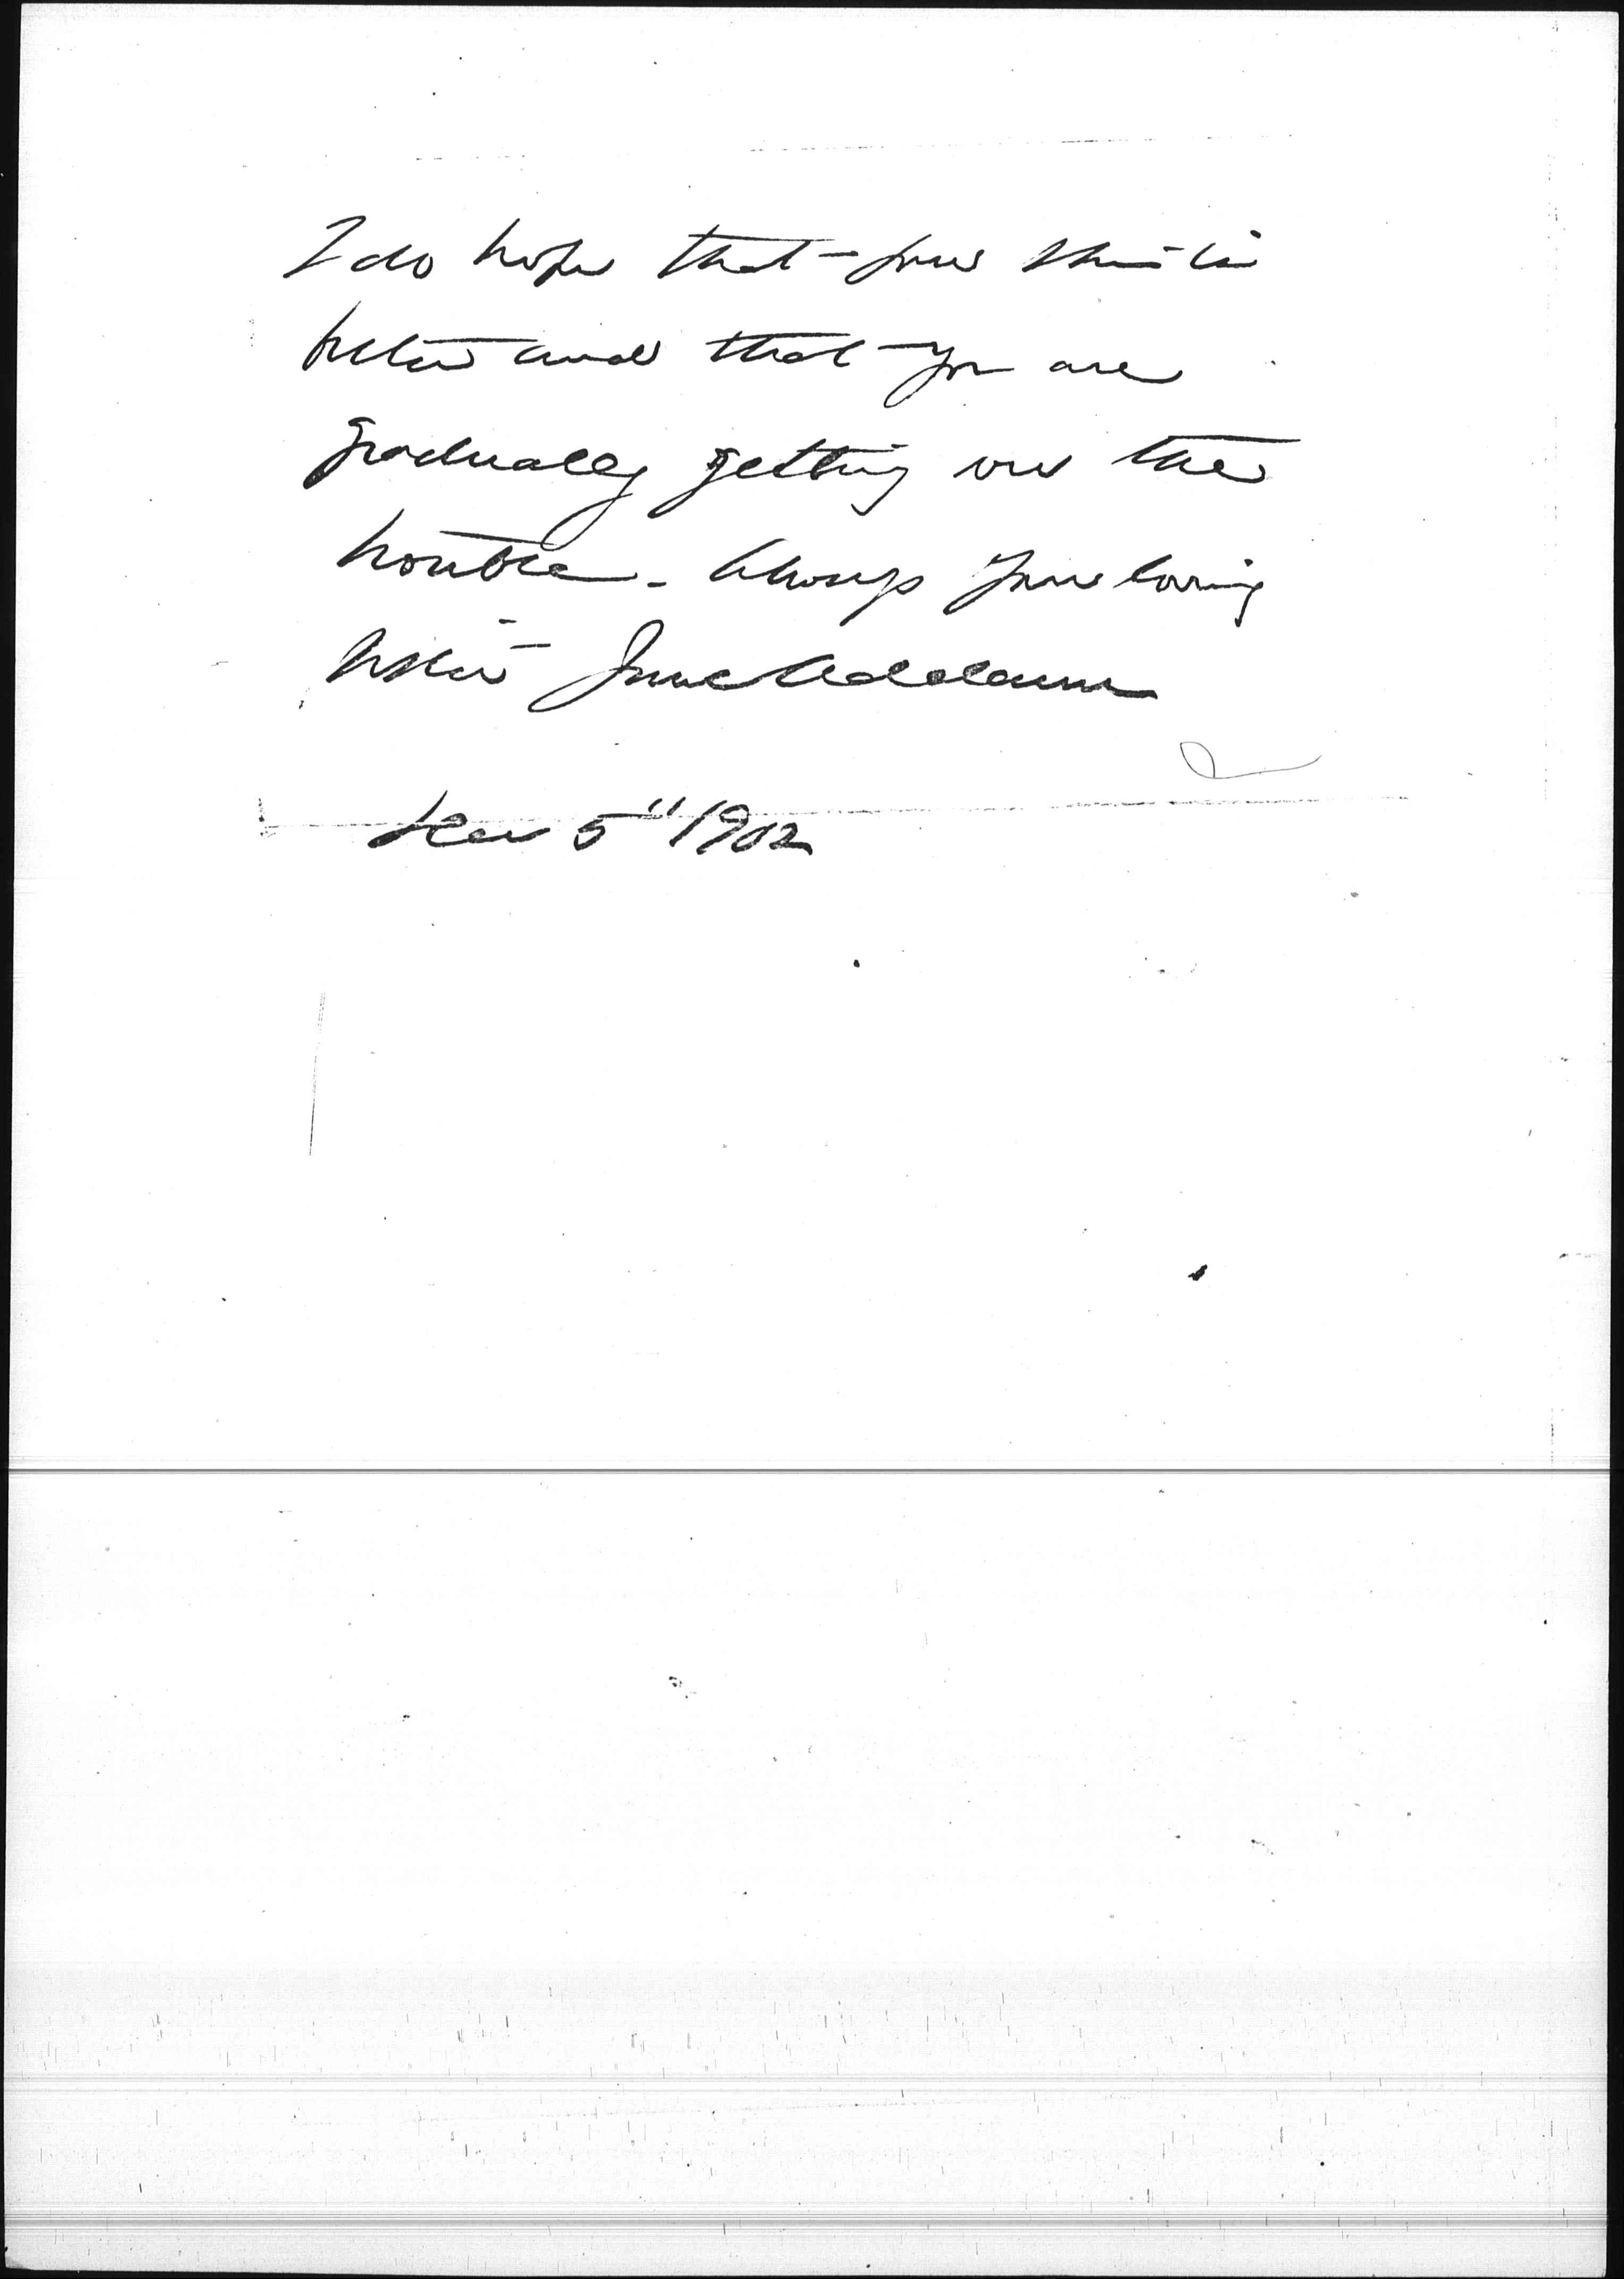 I do hope that your skin is
better and that you are
gradually getting over the
trouble. Always your loving
sister Jane Addams
Dec 5" 1902